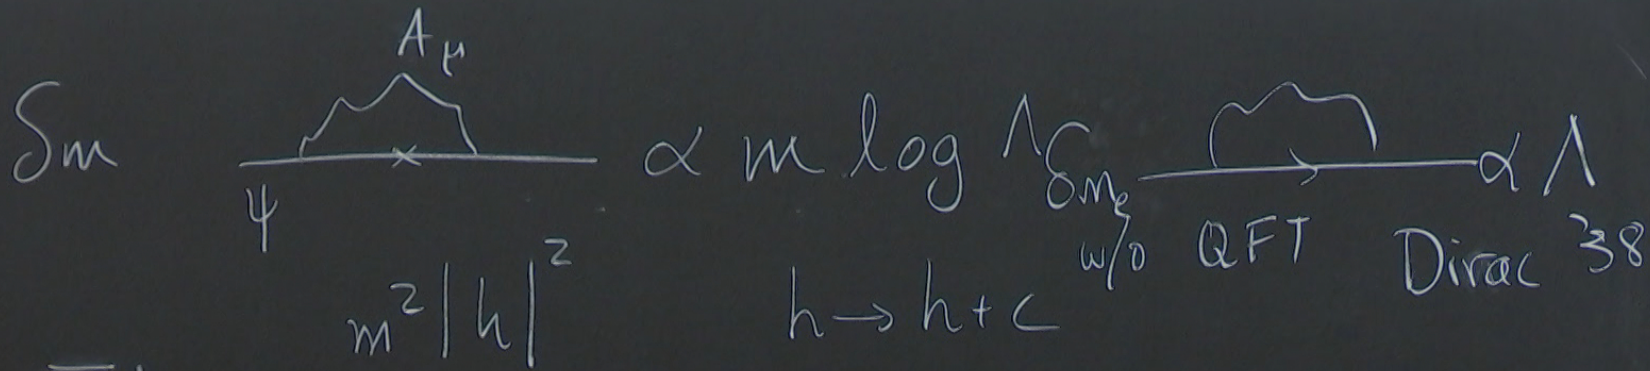 A_μ
δm ∝ m log Λ δm_e ∝ Λ
ψ w/o QFT Dirac '38
m²|h|² h → h + c